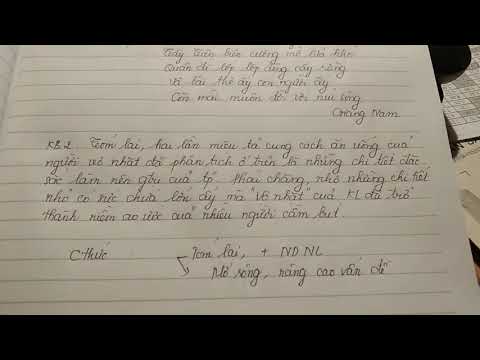 Tây Tiến biên cương mờ lửa khói
Quân đi lớp lớp động cây rừng
Và bài thơ ấy con người ấy
Còn mãi muôn đời với núi sông
Giang Nam
KB2 Tóm lại, hai lần miêu tả cung cách ăn uống của
người vợ nhặt đã phân tích ở trên là những chi tiết đặc
sắc làm nên giá trị của tp. Phải chăng, nhờ những chi tiết
nhỏ có sức chứa lớn ấy mà "Vợ nhặt" của KL đã trở
thành niềm ao ước của nhiều người cầm bút.
C thức
Tóm lại, + NDNL
Mở rộng, nâng cao vấn đề